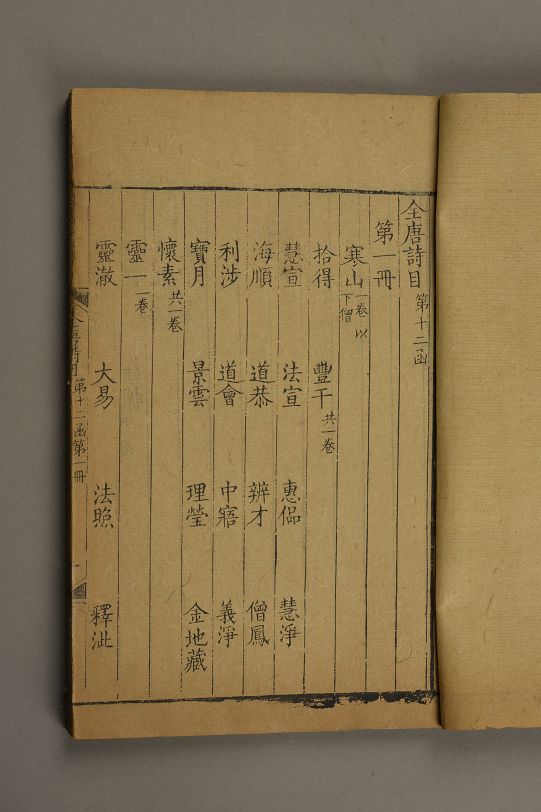 全唐詩目 第十二函
第一冊
寒山 一卷以下僧
拾得 豐干 共一卷
慧宣 法宣 惠偘 慧淨
海順 道恭 辨才 僧鳳
利涉 道會 中寤 義淨
寶月 景雲 理瑩 金地藏
懷素 共一卷
靈一 一卷
靈澈 大易 法照 釋泚
全唐詩目 第十二函第一冊